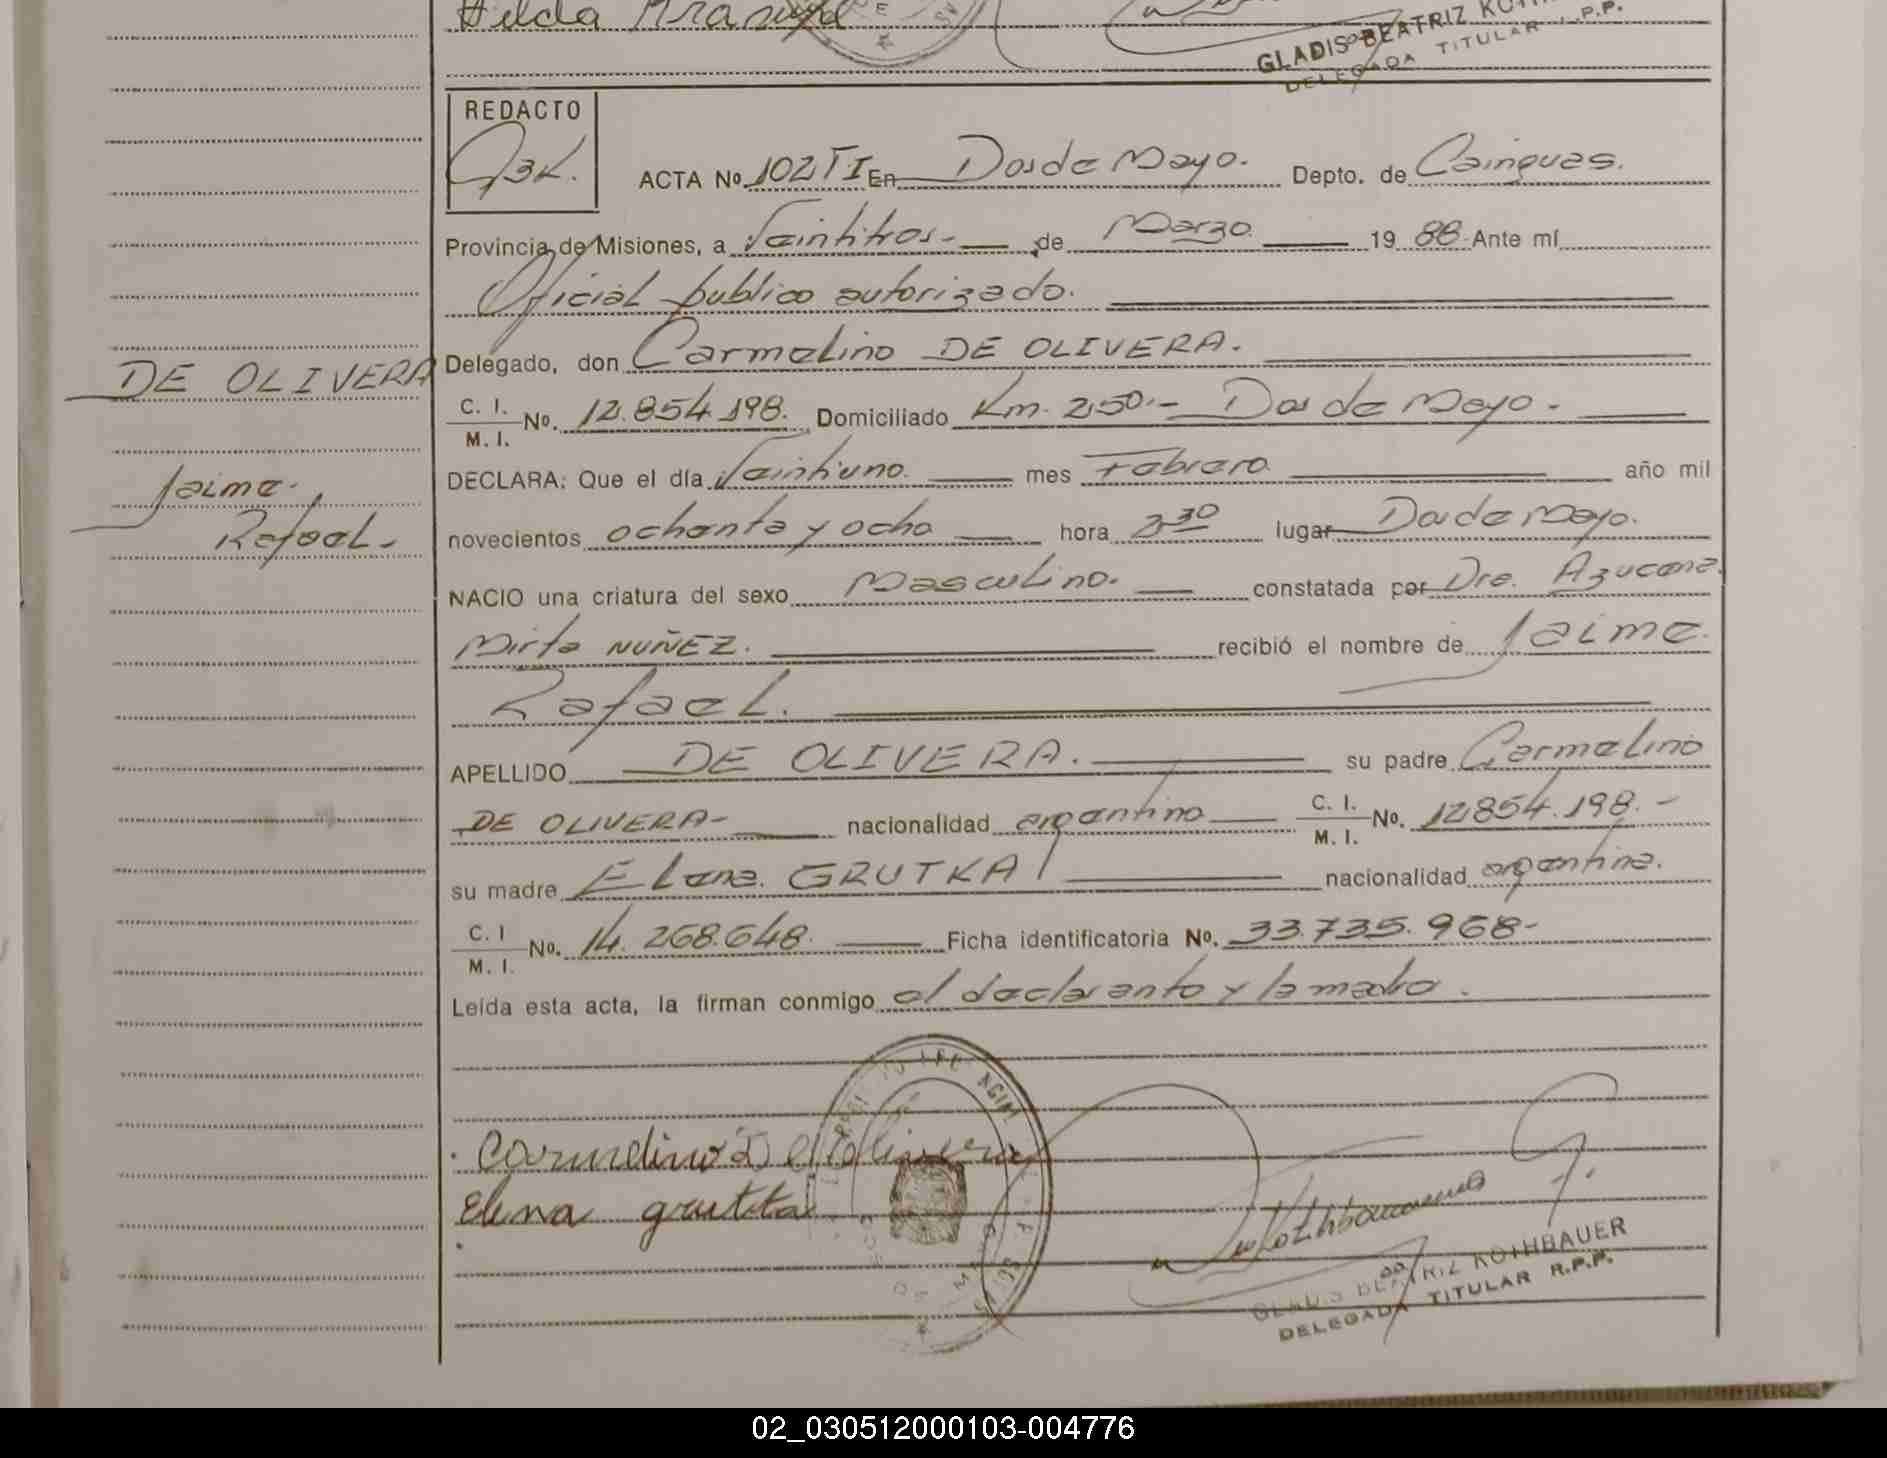 Hilda
GLADIS BEATRIZ
DELEGADA TITULAR R.P.P.
REDACTO
GBK.
ACTA Nº 102 TI En Dos de Mayo. Depto. de Cainguas.
Provincia de Misiones, a Veintitres de Marzo 19 88 Ante mí
Oficial publico autorizado.
DE OLIVERA
Delegado, don Carmelino DE OLIVERA.
C. I.
M. I. Nº. 12.854.198. Domiciliado Km. 250.- Dos de Mayo.
Jaime
Rafael.
DECLARA: Que el día Veintiuno. mes Febrero. año mil
novecientos ochenta y ocho hora 2 30 lugar Dos de Mayo.
NACIO una criatura del sexo Masculino. constatada por Dra. Azucena
Mirta NUÑEZ. recibió el nombre de Jaime
Rafael.
APELLIDO DE OLIVERA. su padre Carmelino
DE OLIVERA- nacionalidad argentino C. I.
M. I. Nº. 12.854.198.-
su madre Elena GRUTKA nacionalidad argentina.
C. I
M. I. Nº. 14.268.648. Ficha identificatoria Nº. 33.735.968-
Leída esta acta, la firman conmigo el declarante y la madre.
Carmelino De Olivera
Elena grutka
GLADIS BEATRIZ ROTHBAUER
DELEGADA TITULAR R.P.P.
02_030512000103-004776